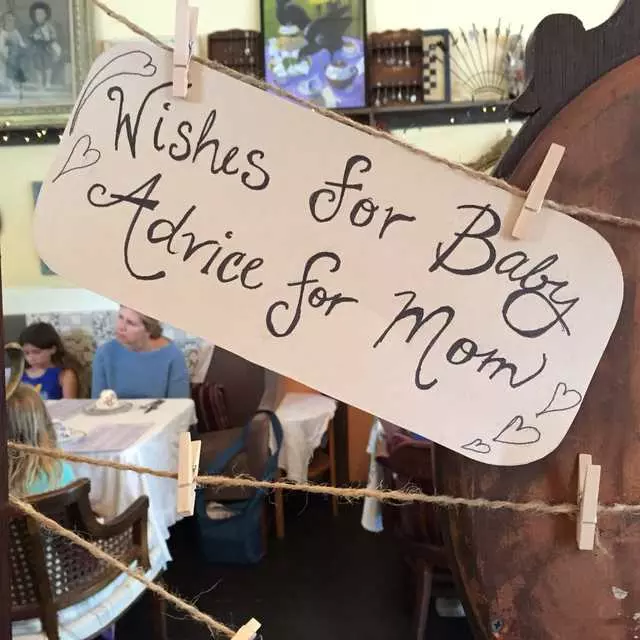 Wishes for Baby
Advice for Mom